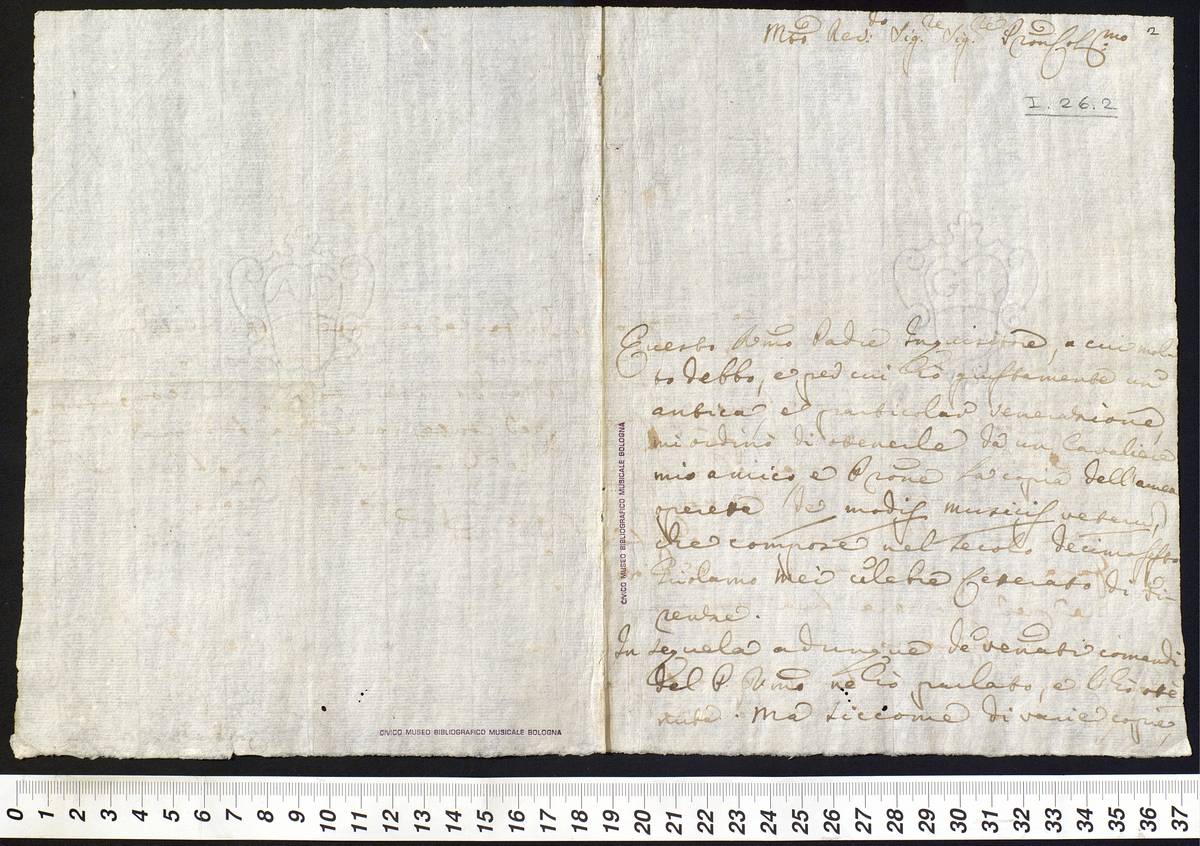 2
Mto Revdo Sigre Sigre Pron Colmo
I. 26. 2
Questo Rmo Padre Inquisitore, a cui mol
to debbo, e per cui hò giustamente un'
antica e particolar venerazione,
mi ordinò di ottenerle da un Cavaliere
mio amico, e Prone la copia dell'amea
operetta de modis musicis veterum,
che compose nel secolo decimosesto
Girolamo Mei celebre letterato di Fi-
renze.
In sequela adunque de venerati comandi
del P. Rmo ne hò parlato, e l'hò otte
nuta. Ma siccome di varie copie,
CIVICO MUSEO BIBLIOGRAFICO MUSICALE BOLOGNA
CIVICO MUSEO BIBLIOGRAFICO MUSICALE BOLOGNA
0 1 2 3 4 5 6 7 8 9 10 11 12 13 14 15 16 17 18 19 20 21 22 23 24 25 26 27 28 29 30 31 32 33 34 35 36 37